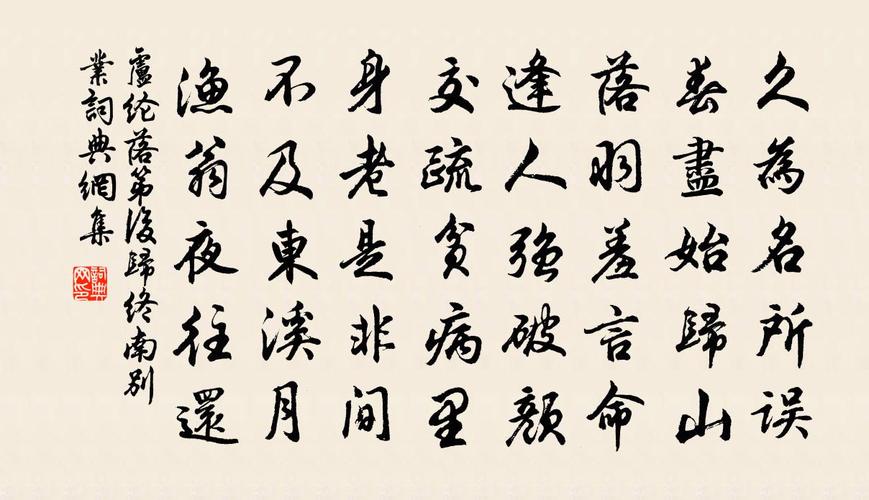 久為名所误
春盡始歸山
落羽羞言命
逢人强破顏
交疏貧病里
身老是非間
不及東溪月
漁翁夜往還
盧纶落第後歸终南别
業詞典網集
詞典
网印